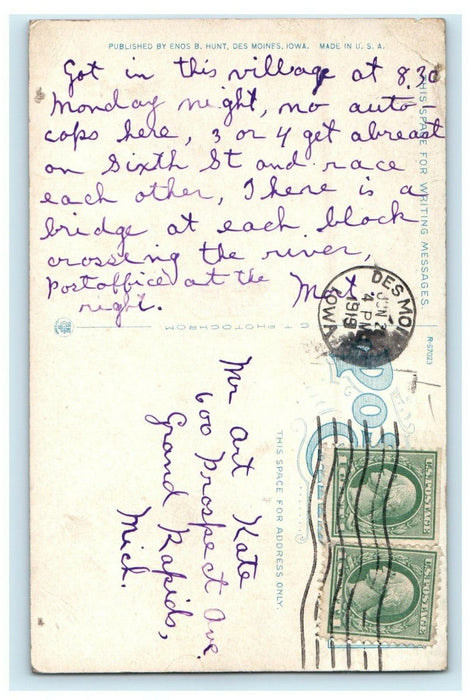 PUBLISHED BY ENOS B. HUNT, DES MOINES, IOWA. MADE IN U. S. A.
Got in this village at 8.30
Monday night, no auto-
cops here, 3 or 4 get abreast
on Sixth St and race
each other, There is a
bridge at each block
crossing the river,
Postoffice at the
right.
Mort
THIS SPACE FOR WRITING MESSAGES.
DES MOI
JUN 2
4 PM
1919
IOWA
CT PHOTOCHROM
R-57023
Pos
THIS SPACE FOR ADDRESS ONLY.
Mr Art Kate
600 Prospect Ave.
Grand Rapids,
Mich.
U.S. POSTAGE
U.S. POSTAGE